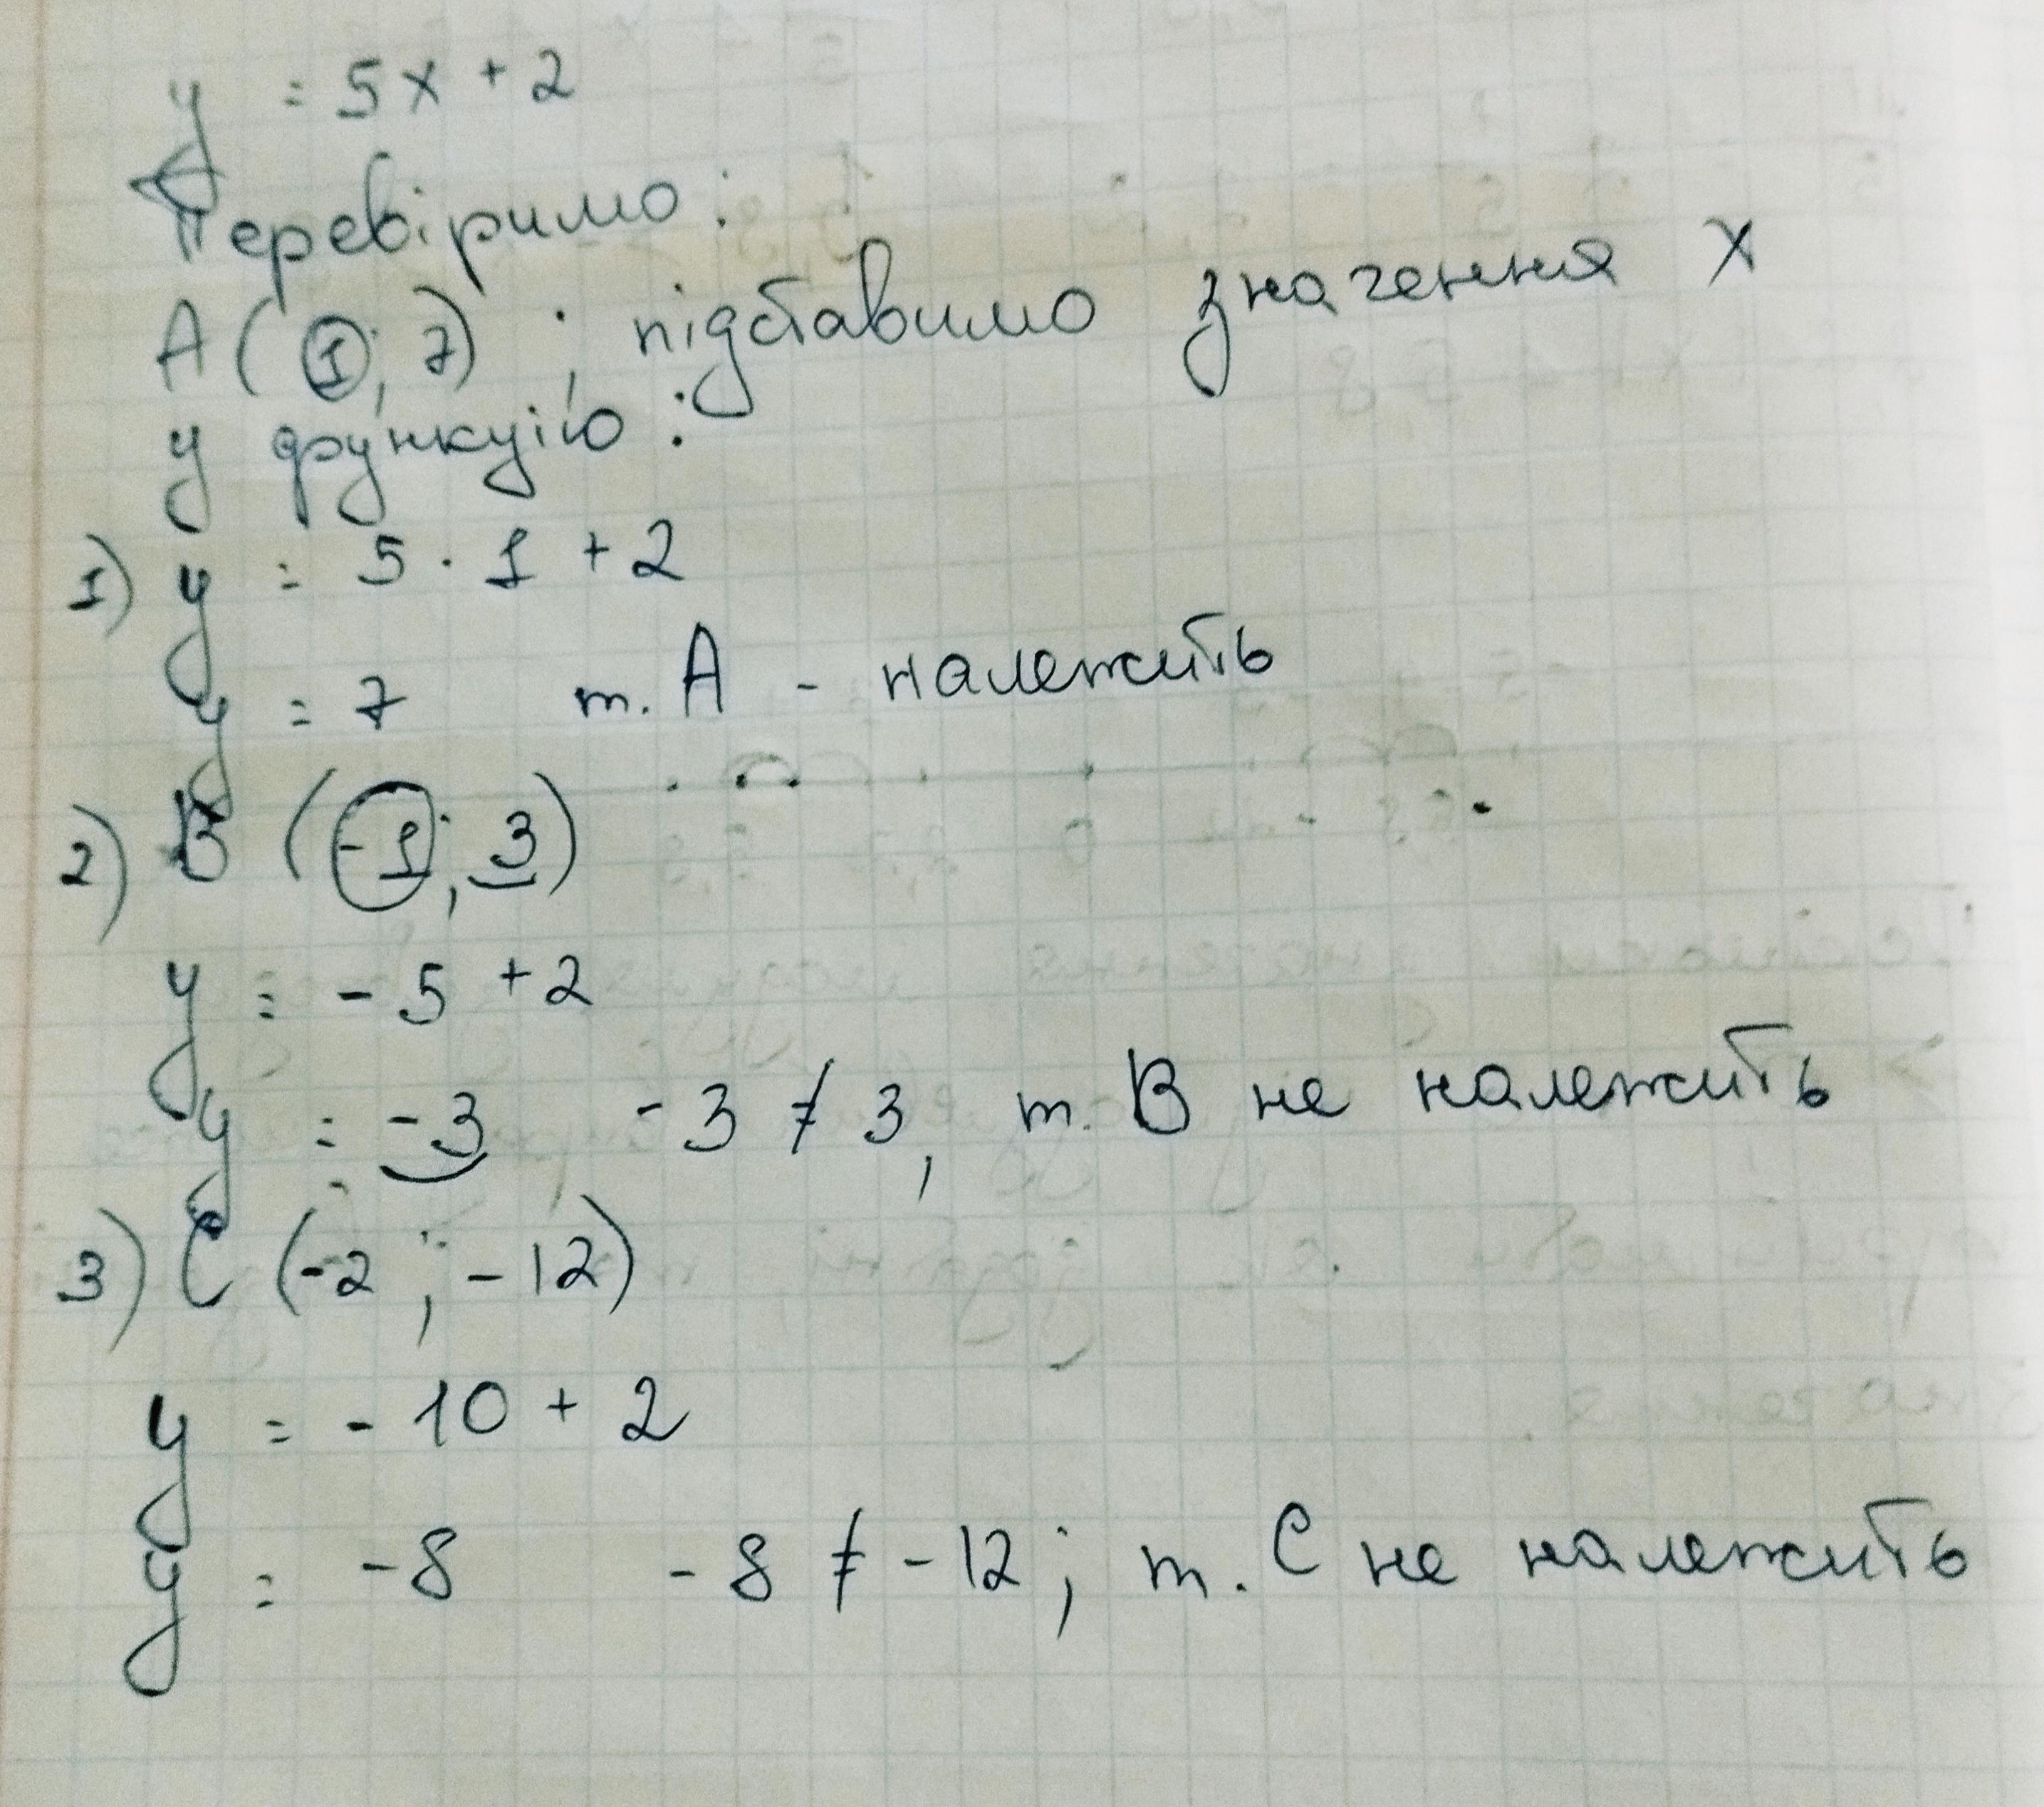 y = 5x + 2
Перевіримо:
A(1; 7) ; підставимо значення x
у функцію:
1) y = 5 · 1 + 2
y = 7 т. A - належить
2) B (-1; 3)
y = -5 + 2
y = -3 -3 ≠ 3, т. B не належить
3) C (-2 ; -12)
y = -10 + 2
y = -8 -8 ≠ -12; т. C не належить